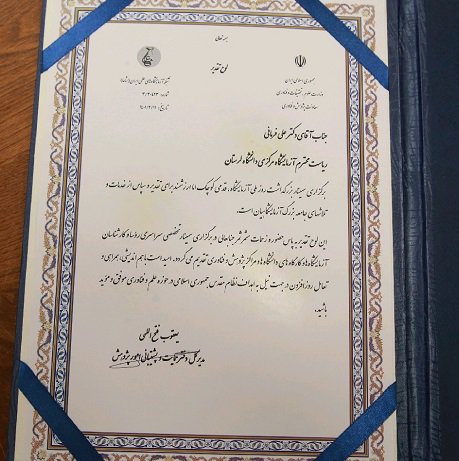 بسمه تعالی
جمهوری اسلامی ایران
وزارت علوم، تحقیقات و فناوری
معاونت پژوهش و فناوری
لوح تقدیر
شبکه آزمایشگاه‌های علمی ایران (شاعا)
شماره:
تاریخ:
جناب آقای دکتر علی فرمانی
ریاست محترم آزمایشگاه مرکزی دانشگاه لرستان
برگزاری سمینار بزرگداشت روز ملی آزمایشگاه، قدمی کوچک اما ارزشمند برای تقدیر و سپاس از خدمات و
تلاشهای جامعه بزرگ آزمایشگاهیان است.
این لوح تقدیر به پاس حضور و زحمات مثمرثمر جنابعالی در برگزاری سمینار تخصصی سراسری روساء و کارشناسان
آزمایشگاه‌ها و کارگاه‌های دانشگاه‌ها و مراکز پژوهش و فناوری تقدیم می‌گردد. امید است با هم اندیشی، همراهی و
تعامل روزافزون در جهت نیل به اهداف نظام مقدس جمهوری اسلامی در حوزه علم و فناوری موفق و موید
باشید.
یعقوب فتح الهی
مدیر کل دفتر حمایت و پشتیبانی امور پژوهشی